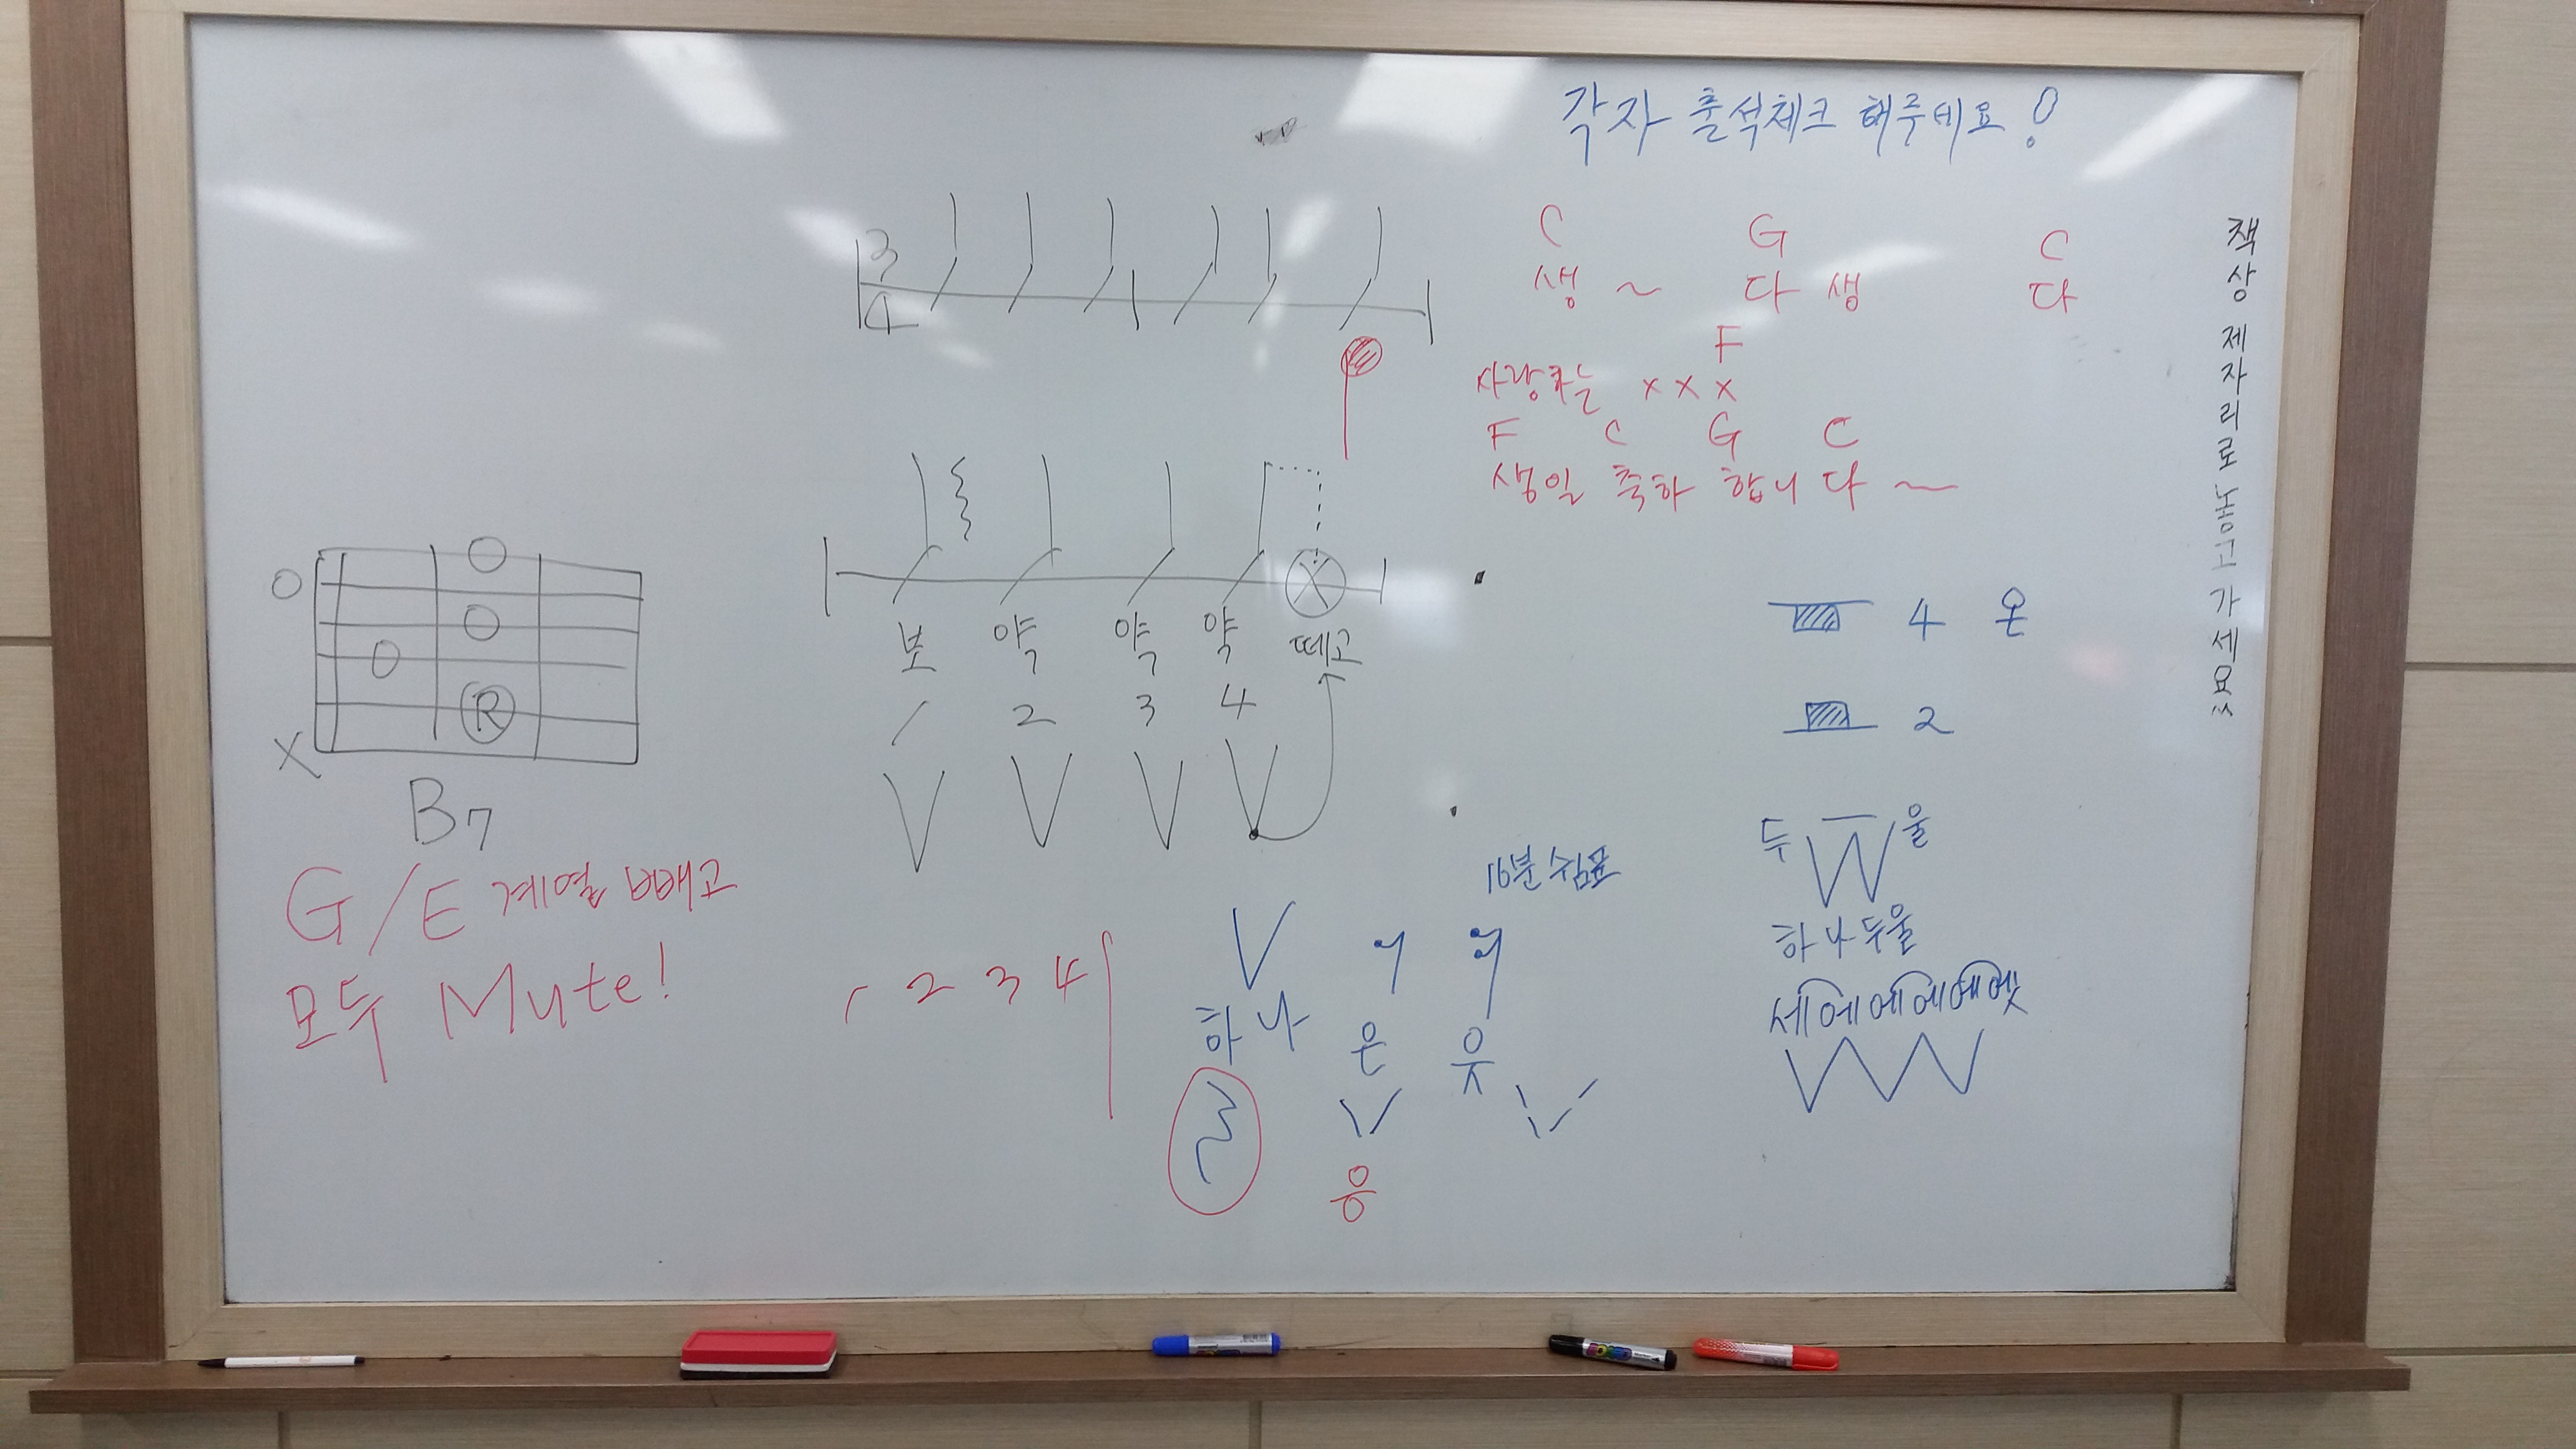 각자 출석체크 해주세요!
C G C
생 ~ 다 생 다
F
사랑하는 x x x
F C G C
생일 축하 합니 다 ~
책상 제자리로 놓고 가세요
3
4
보 약 약 약 떼고
1 2 3 4
O
X
R
B7
G/E 계열 빼고
모두 Mute!
1 2 3 4
16분 쉼표
하나 은 읏
응
4 온
2
두 울
하나 두울
세에에에에엣